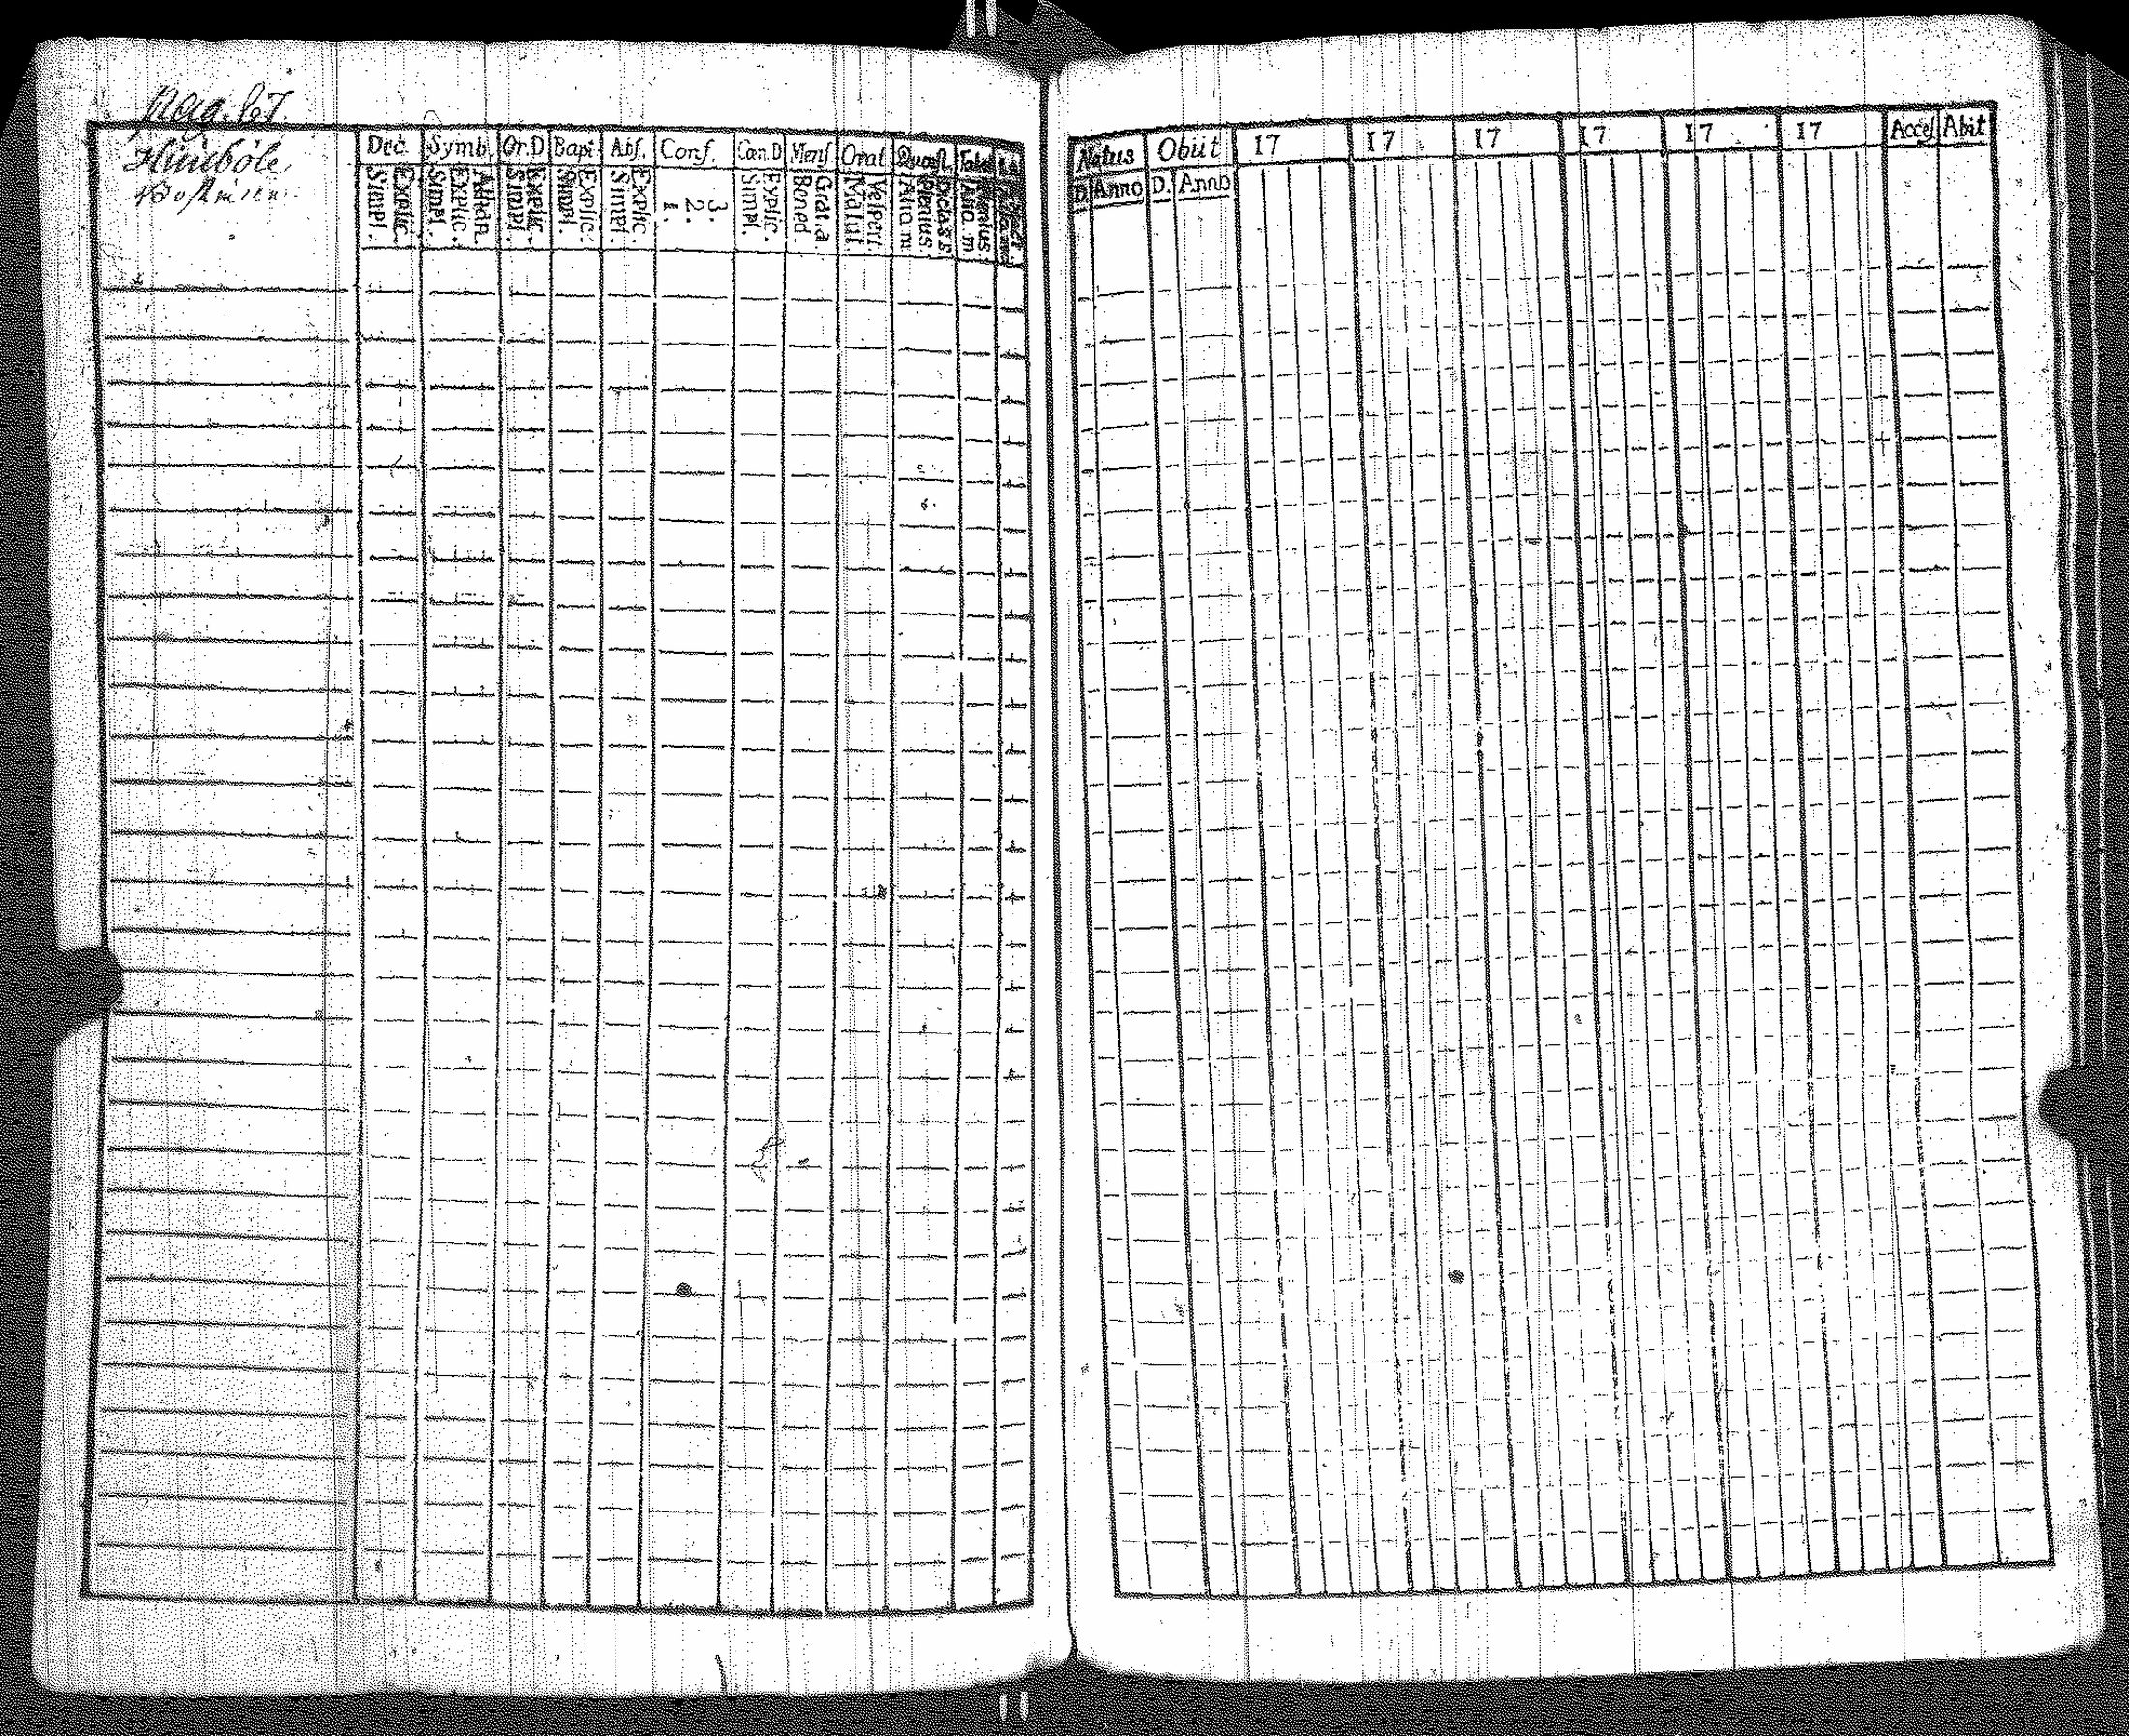 pag. 67.
Hinnböle
Dec. Symb. Or.D Bapt. Abs. Conf. Cœn.D Mens Orat Quæst. Tabul
Simpl. Explic. Simpl. Explic. Athan. Simpl. Explic. Simpl. Explic. Simpl. Explic. 1. 2. 3. Simpl. Explic. Bened. Grat. a. Matut. Vesperi. Aliq. m. Plenius. Aliq. m
Natus Obiit 17 17 17 17 17 17 Acces Abit
D. Anno D. Anno